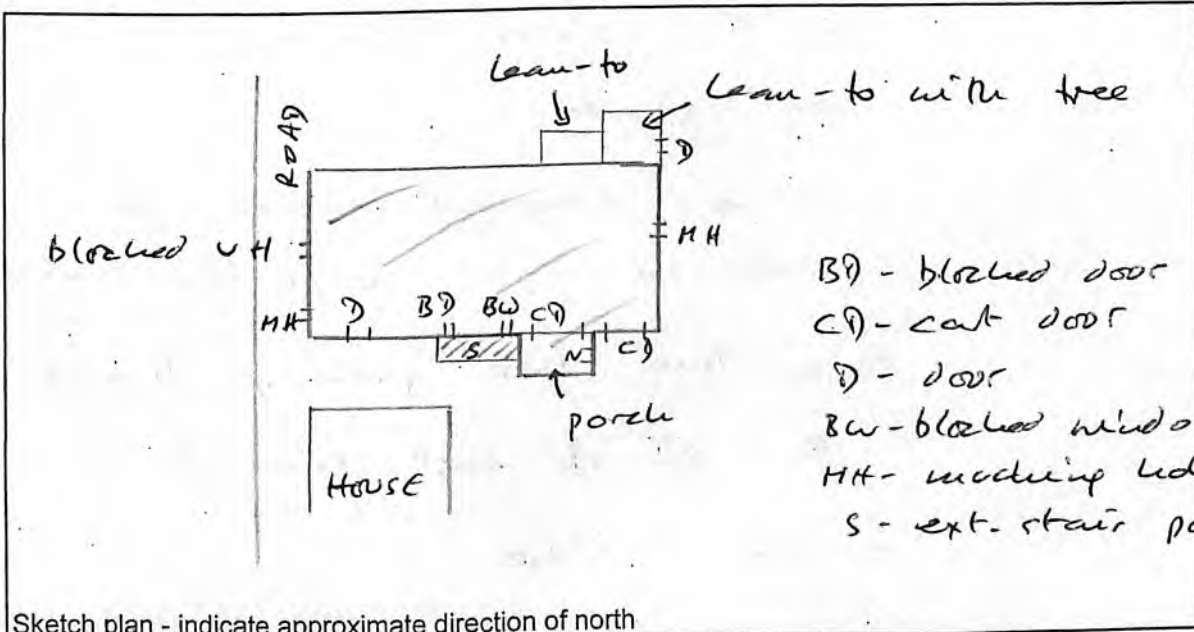 Lean-to
Lean-to with tree
ROAD
D
blocked VH
MH
MH
D
BD
BW
CD
S
N
CD
porch
HOUSE
BD - blocked door
CD - cart door
D - door
BW - blocked windo
MH - mucking hol
S - ext. stair
Sketch plan - indicate approximate direction of north